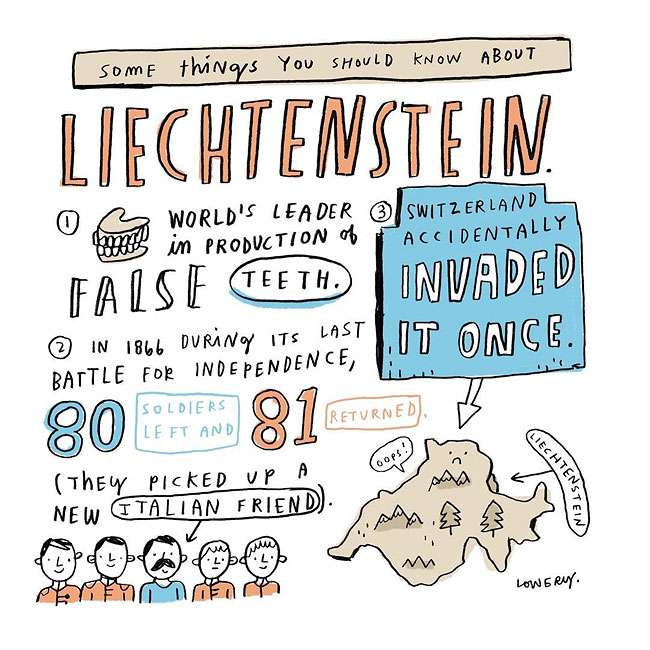 SOME things YOU SHOULD KNOW ABOUT
LIECHTENSTEIN.
① WORLD'S LEADER
in PRODUCTION of
FALSE TEETH.
② IN 1866 DURING ITS LAST
BATTLE FOR INDEPENDENCE,
80 SOLDIERS
LEFT AND 81 RETURNED.
(They PICKED UP A
NEW ITALIAN FRIEND).
③ SWITZERLAND
ACCIDENTALLY
INVADED
IT ONCE.
OOPS!
LIECHTENSTEIN
LOWERY.